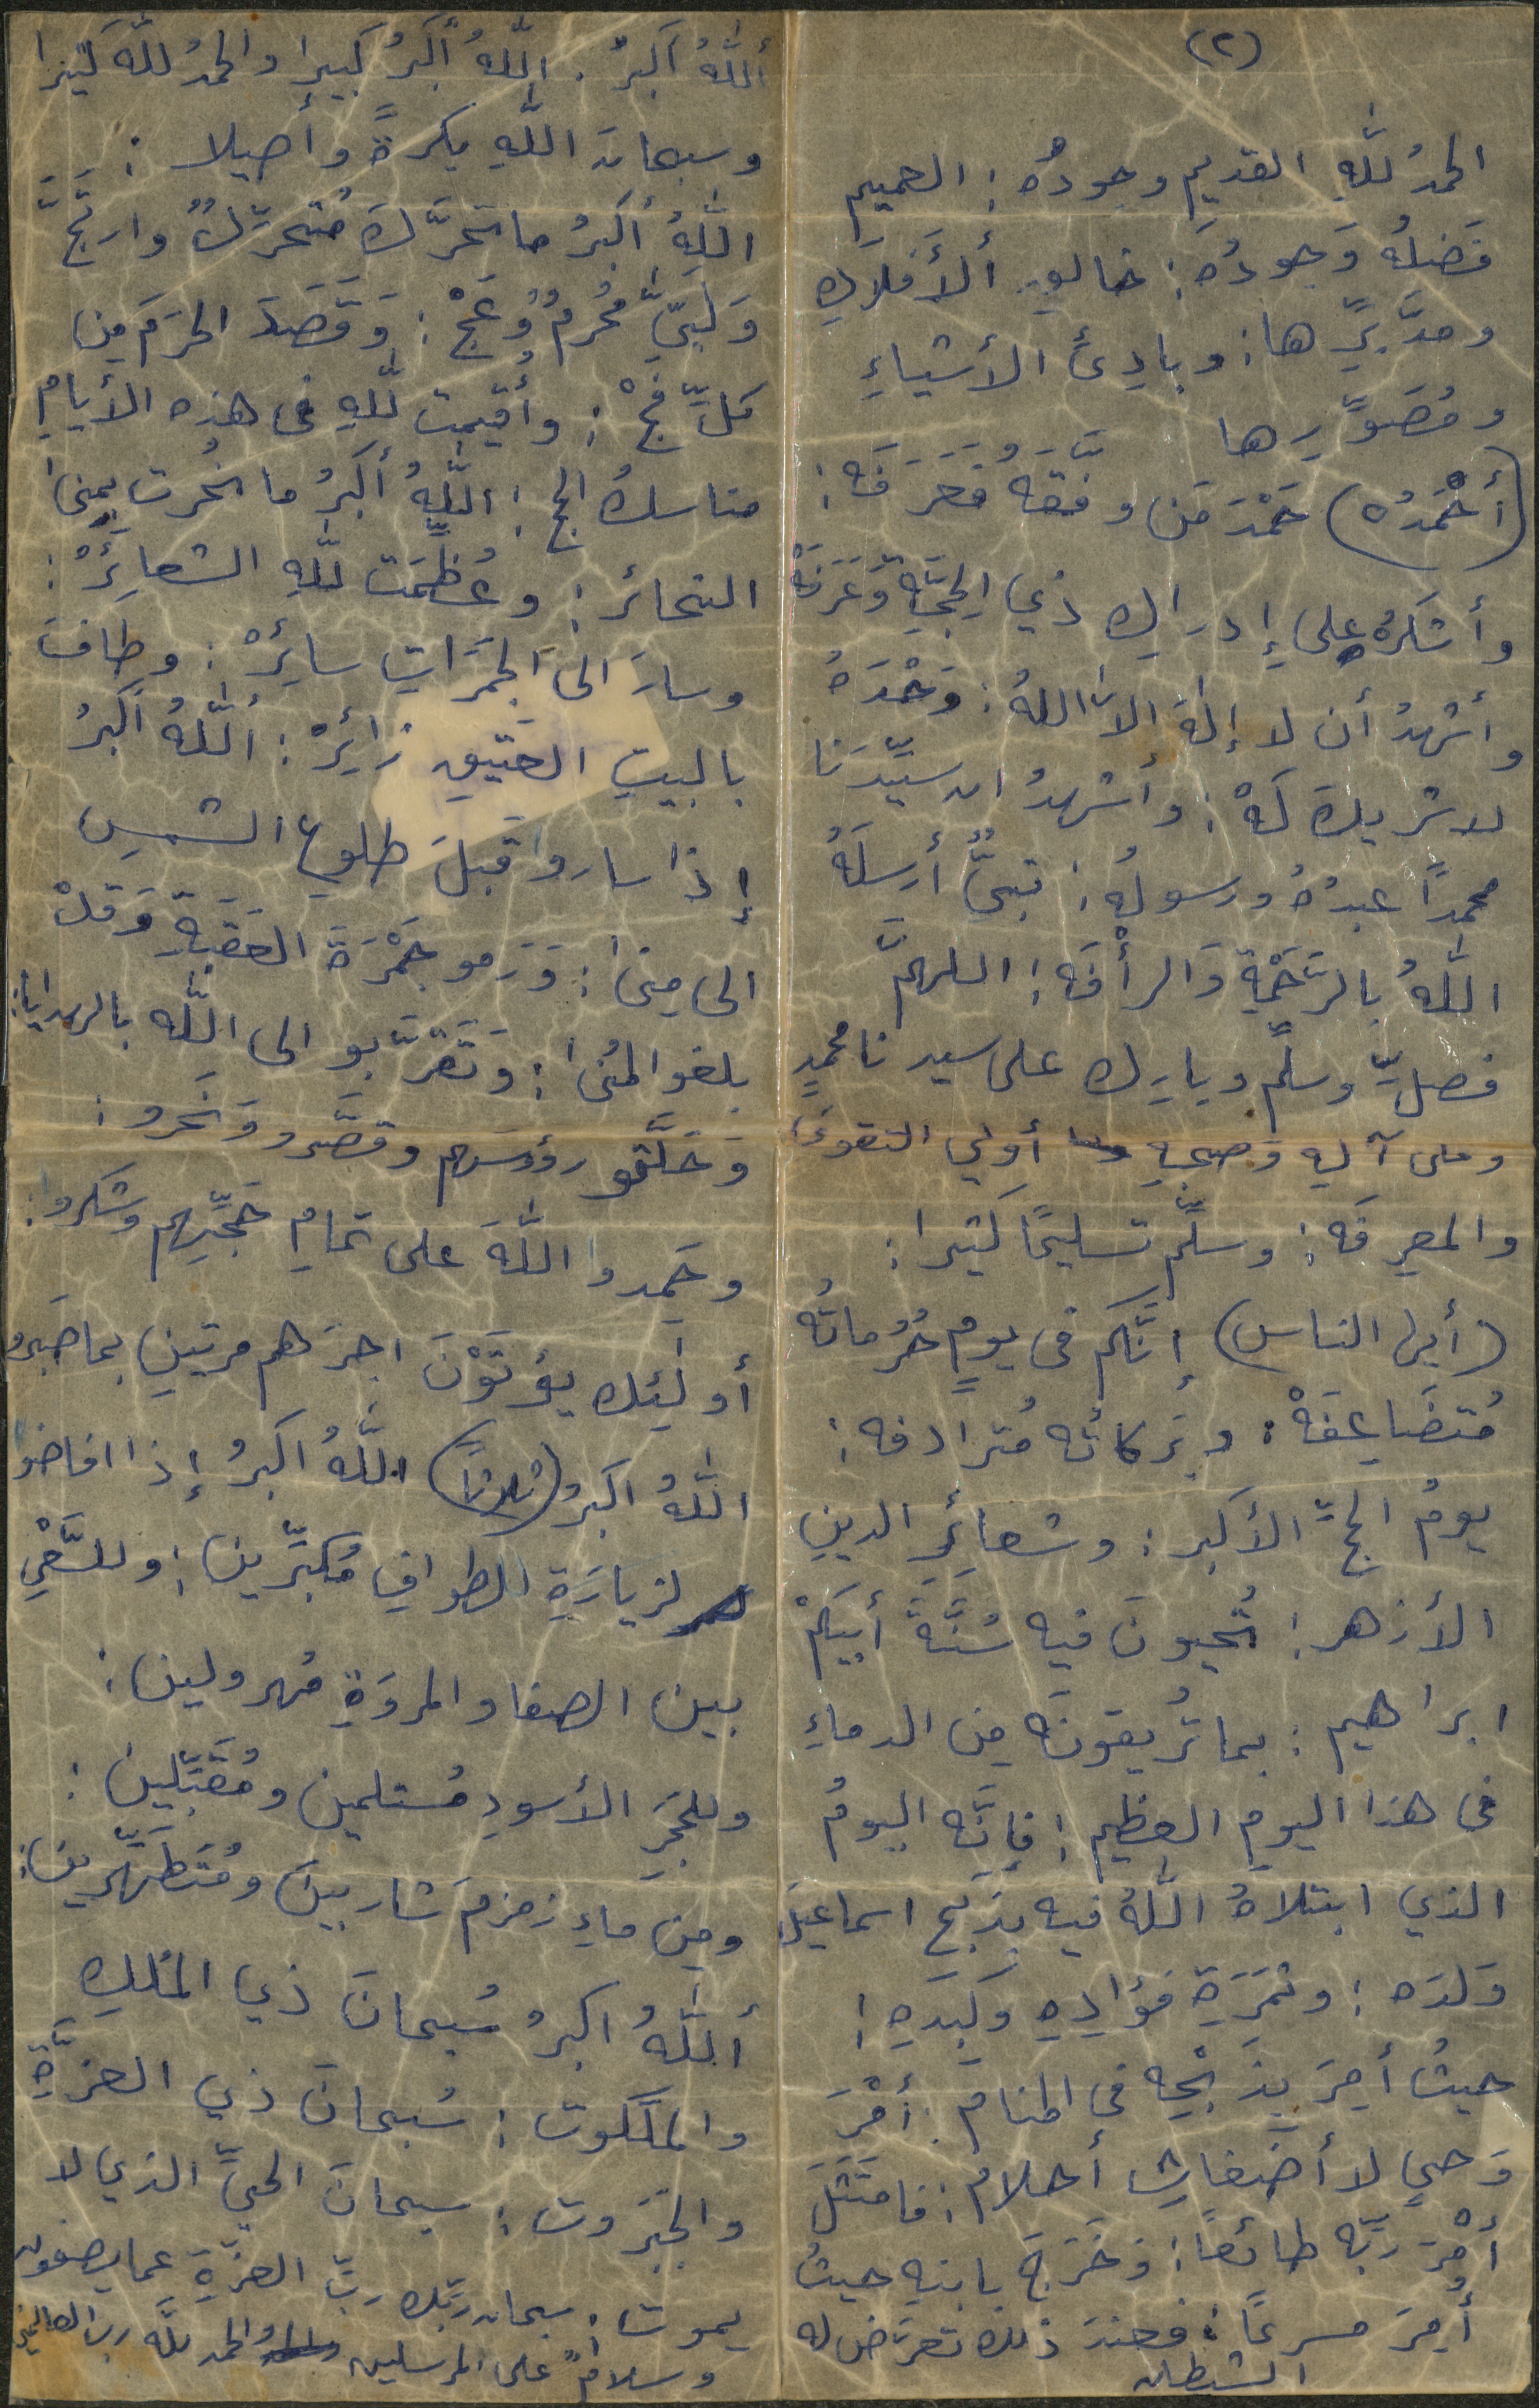 (٢)
الحمدُ للّٰهِ القديمِ وجودُهُ : العميمِ
فَضلُه وَجودُه : خالقِ ألأَفلاكِ
ومدَبِّرِها : وبارِئِ الأشياءِ
ومُصَوِّرِها
(أَحْمَدُه) حَمْدَ مَن وفَّقَهُ فَعَرَفَه :
وأشكرُه على إدراكِ ذي الحِجَّةِ وَعَرَفَهْ
وأشهدُ أن لا إلٰهَ الا اللهُ : وَحْدَهُ
لا شريكَ لَهْ : وأشهدُ ان سيِّدَنا
محمداً عبدُهُ ورسولُه : نبيٌّ أرسلَهُ
اللّٰهُ بالرَحْمَةِ وَالرأْفَه : اللهمَّ
فصلِّ وسلّم وبارِك على سيدنا محمدٍ
وعلى آلهِ وَصحبهِ أولي التقوىٰ
والمعرفَه : وسلّم تسليمًا كثيرا :
(أيها الناس) إنَّكم فى يومٍ حُرُماتُه
مُتضَاعِفَهْ : وبَركاتُه مُترادفه :
يومُ الحجّ الأكبر : وشعائرِ الدينِ
الأزهر : تُحيونَ فيه سُنَّةَ أبيكمْ
ابراهيم : بما تُريقونَه مِن الدماءِ
فى هذا اليومِ العظيم : فإنَّه اليومُ
الذي ابتلاهُ اللّٰهُ فيه بذَبحِ اسماعيلَ
وَلدَه : وثَمَرَةِ فؤادِهِ وَكَبَدِهِ :
حيثُ أمِرَ بذَبْحِه فى المنام : أمْرَ
وَحيٍ لا أضَغاثِ أحلام : فامتَثَلَ
أمْرَ ربِّه طائعاً : وَخَرَجَ بابنهِ حيثُ
أُمِرَ مسرعاً : فعندَ ذلك تعرَّض له
الشيطان
أللّٰهُ أكبرُ . اللّٰهُ أكبرُ كبيرا والحمدُ للّٰه كثيرا
وسبحانَ اللّٰهِ بكرةً وأصيلا :
اللّٰهُ أكبرُ ما تحرَّكَ مُتحرِّكٌ وارتَجَّ
وَلَبَّى مُحرِمٌ وُعَجْ : وَقَصَدَ الحرَمَ مِن
كلِّ فَجْ : وأُقيمت للّٰهِ فى هذه الأيامِ
مناسكُ الحج : اللّٰهُ أكبرُ ما نُحرت بمنىٰ
النحائر : وعُظِّمَت للّٰهِ الشعائِرْ :
وسارَ الى الجمَراتِ سائِرْ : وطافَ
بالبيتِ العتيقِ زائِرْ : أللّٰهُ اكبرُ
إذا ساروا قبلَ طلوعِ الشمسِ
الى مِنىٰ : وَرَمو جَمْرَةَ العَقَبَةِ وَقَدْ
بلغو المُنىٰ : وَتَقرَّبو الى اللّٰه بالهدايا :
وَحَلَّقو رؤوسَهم وقصَّرو وَنحَرو :
وحَمِدوا اللّٰهَ على تمامِ حَجِّهِم وشكرو :
أولٰئك يؤتَوْنَ اجرَهم مرتينِ بما صَبرو
اللّٰهُ اكبرُ (ثلاثاً) اللّٰهُ اكبرُ إذا افاضو
لزيارَةِ الطوافِ مُكبِّرين : وللسَّعْيِ
بين الصفا والمروَةِ مُهرولين :
وللحَجَرِ الأسودِ مُستلمين ومُقَبِّلين :
ومِن ماءِ زمزمَ شاربينَ ومُتَطَهِّرين :
أللّٰهُ اكبرُ سُبحانَ ذي المُلكِ
والمَلَكوت : سُبحانَ ذي العزَّةِ
والجَبَروت : سبحانَ الحيِّ الذي لا
يموت . سبحان ربِّك ربِّ العزّةِ عما يصفون
وسلامٌ على المرسلين والحمد للّٰه رب العالمين